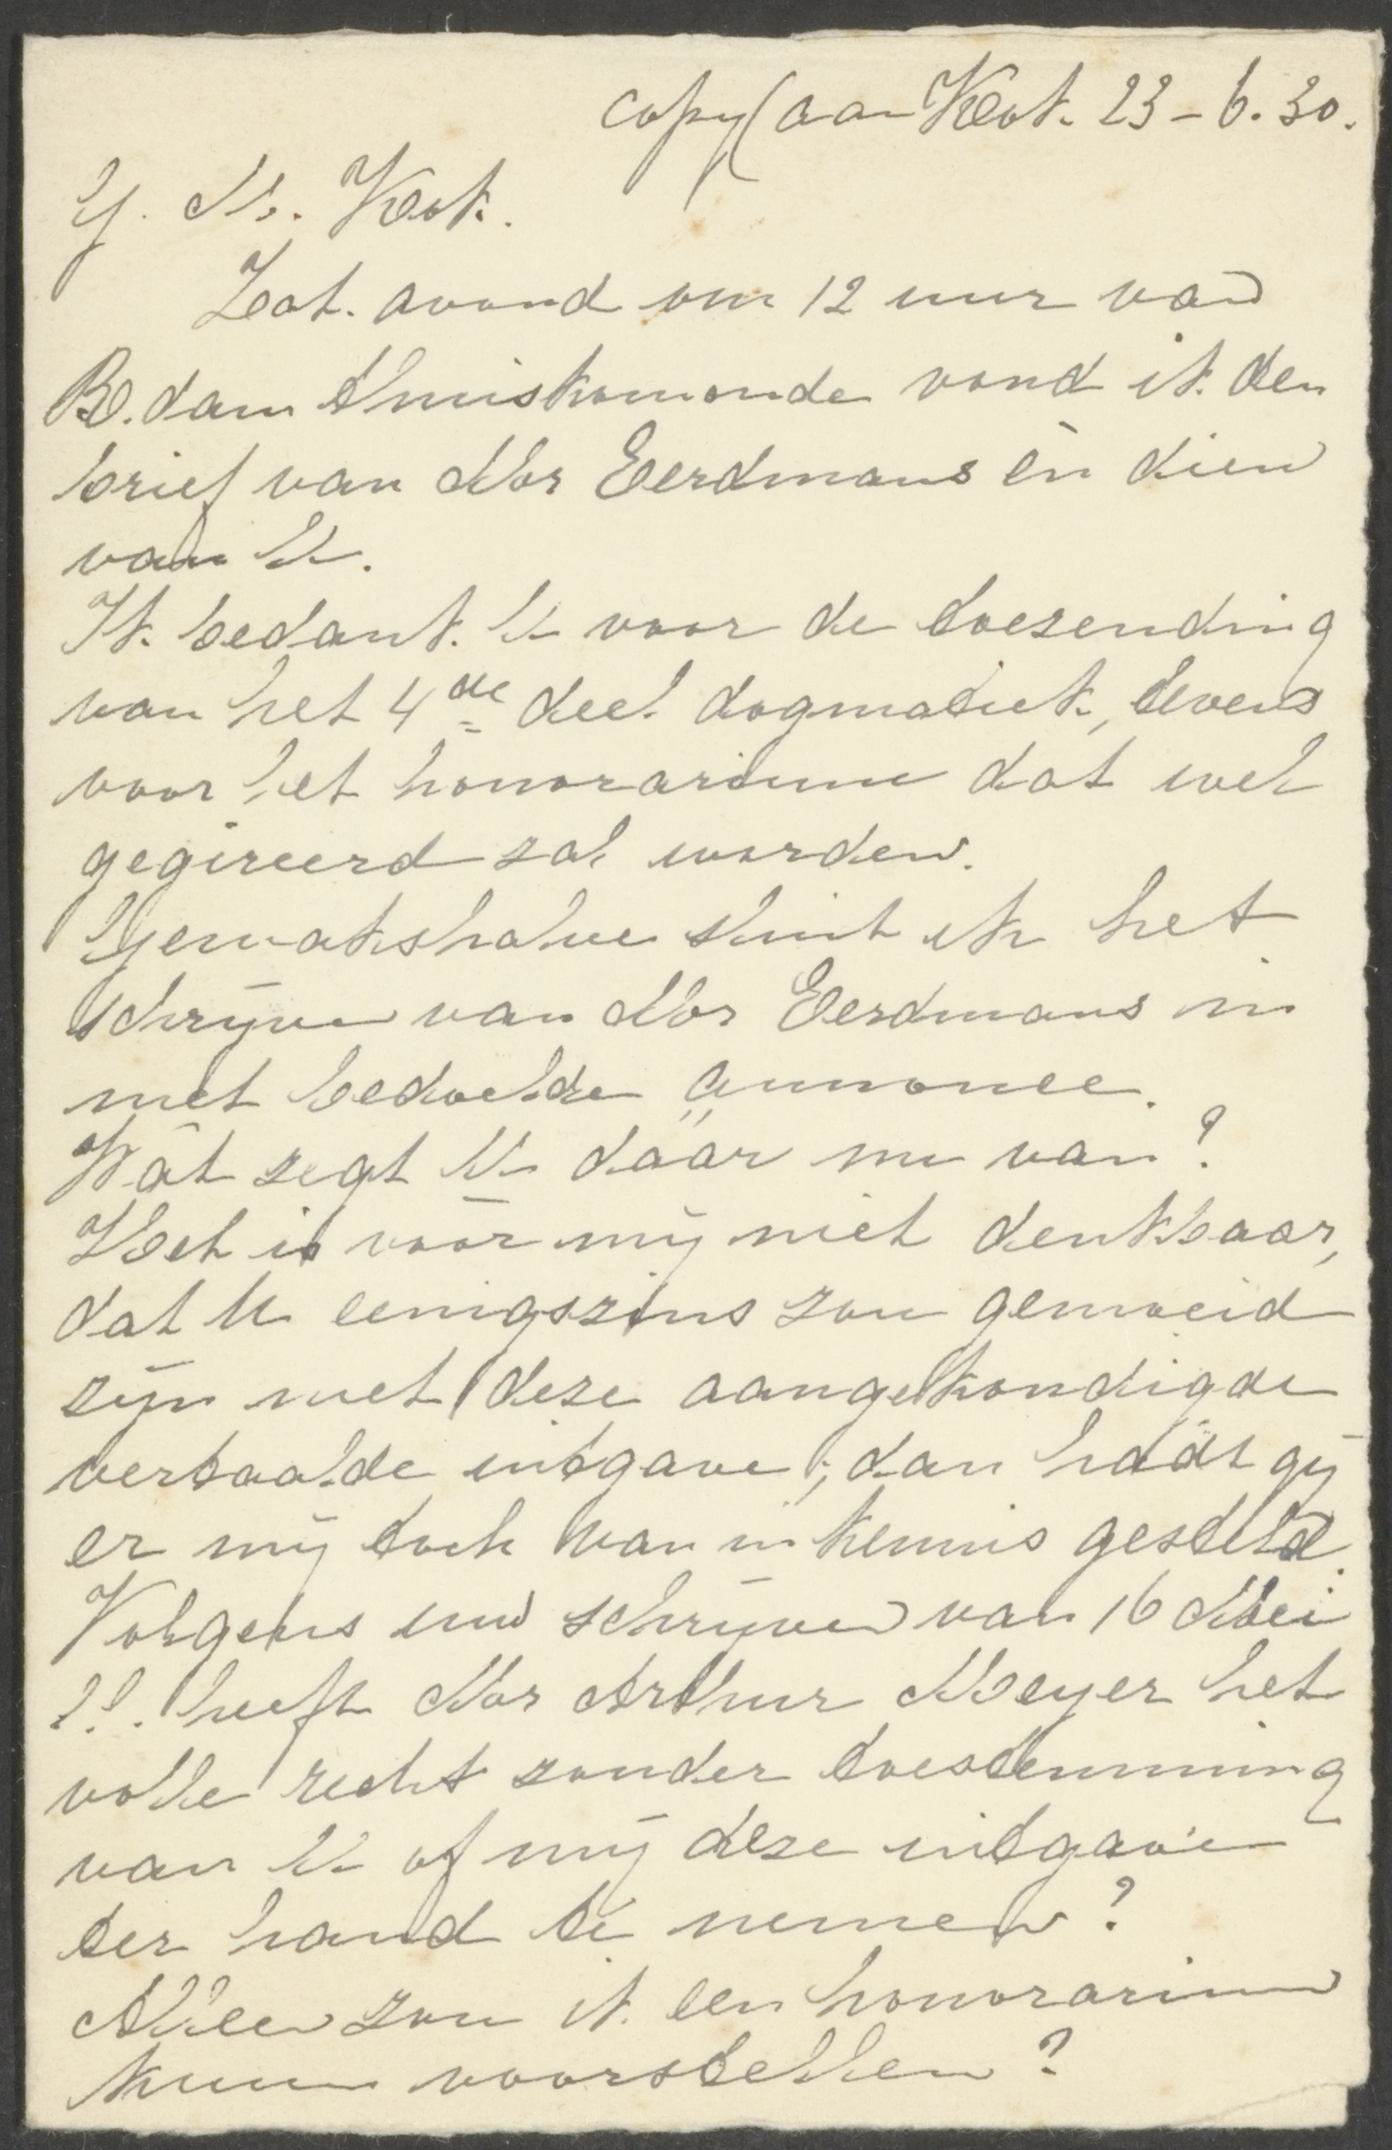 copy (aan Kok. 23-6.30.
G. H. Kok.
Zat. avond om 12 uur van
R.dam thuiskomende vond ik den
brief van Mr Eerdmans èn dien
van U.
Ik bedank U voor de toezending
van het 4de deel dogmatiek, tevens
voor het honorarium dat wel
gegireerd zal worden.
Gemakshalve sluit ik het
schrijven van Mr Eerdmans in
met bedoelde annonce.
Wàt zegt U daar nu van?
Het is voor mij niet denkbaar,
dat U eenigszins zou gemoeid
zijn met deze aangekondigde
vertaalde uitgave; dan hadt gij
er mij toch van in kennis gesteld.
Volgens uw schrijven van 16 Mei
l.l. heeft Mr Arthur Meyer het
volle recht zonder toestemming
van U of mij deze uitgave
ter hand te nemen?
Alleen zou ik een honorarium
kunnen voorstellen?